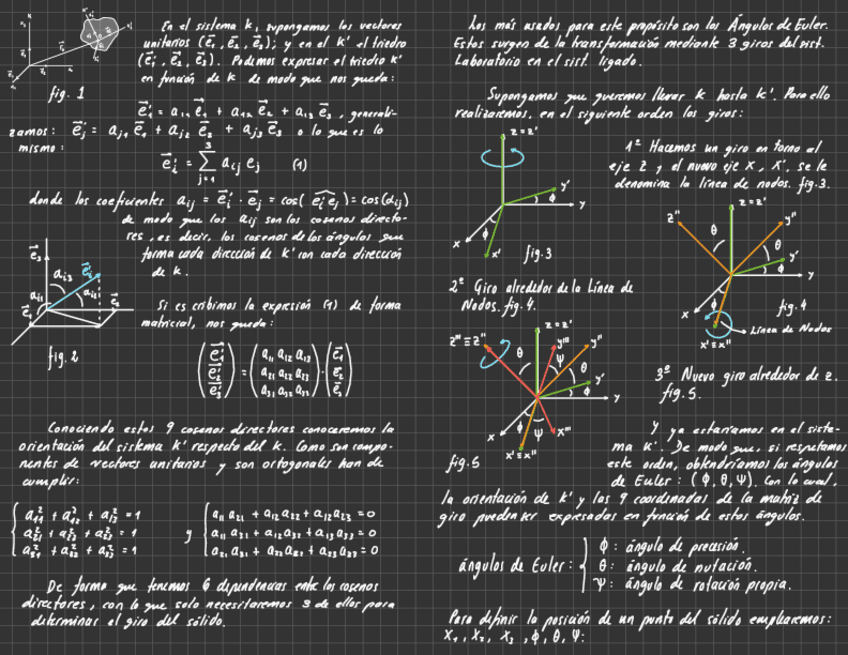 En el sistema k, supongamos los vectores
unitarios (e⃗₁, e⃗₂, e⃗₃); y en el k' el triedro
(e⃗₁', e⃗₂', e⃗₃'). Podemos expresar el triedro k'
en función de k de modo que nos queda:
fig. 1
e⃗₁' = a₁₁ e⃗₁ + a₁₂ e⃗₂ + a₁₃ e⃗₃ , generali-
zamos: e⃗ⱼ' = aⱼ₁ e⃗₁ + aⱼ₂ e⃗₂ + aⱼ₃ e⃗₃ o lo que es lo
mismo:
e⃗ᵢ' = Σ³ⱼ₌₁ aᵢⱼ eⱼ (1)
donde los coeficientes aᵢⱼ = e⃗ᵢ' · e⃗ⱼ = cos(eᵢ' eⱼ) = cos(αᵢⱼ)
de modo que los aᵢⱼ son los cosenos directo-
res, es decir, los cosenos de los ángulos que
forma cada dirección de k' con cada dirección
de k.
e⃗₃
e⃗ᵢ'
aᵢ₃
aᵢ₁
aᵢ₂
e⃗₁
e⃗₂
fig. 2
Si escribimos la expresión (1) de forma
matricial, nos queda:
(e⃗₁') (a₁₁ a₁₂ a₁₃) (e⃗₁)
(e⃗₂') = (a₂₁ a₂₂ a₂₃) · (e⃗₂)
(e⃗₃') (a₃₁ a₃₂ a₃₃) (e⃗₃)
Conociendo estos 9 cosenos directores conoceremos la
orientación del sistema k' respecto del k. Como son compo-
nentes de vectores unitarios y son ortogonales han de
cumplir:
a₁₁² + a₁₂² + a₁₃² = 1
a₂₁² + a₂₂² + a₂₃² = 1
a₃₁² + a₃₂² + a₃₃² = 1
y
a₁₁ a₂₁ + a₁₂ a₂₂ + a₁₃ a₂₃ = 0
a₁₁ a₃₁ + a₁₂ a₃₂ + a₁₃ a₃₃ = 0
a₂₁ a₃₁ + a₂₂ a₃₂ + a₂₃ a₃₃ = 0
De forma que tenemos 6 dependencias entre los cosenos
directores, con lo que solo necesitaremos 3 de ellos para
determinar el giro del sólido.
Los más usados para este propósito son los Ángulos de Euler.
Estos surgen de la transformación mediante 3 giros del sist.
Laboratorio en el sist. ligado.
Supongamos que queremos llevar k hasta k'. Para ello
realizaremos, en el siguiente orden los giros:
1º Hacemos un giro en torno al
eje z y el nuevo eje x, x', se le
denomina la línea de nodos. fig.3.
z≡z'
y'
ϕ
y
x
ϕ
x'
fig.3
2º Giro alrededor de la Línea de
Nodos. fig.4.
z≡z'
z''
θ
y''
θ
y'
ϕ
y
x
ϕ
fig.4
Línea de Nodos
x'≡x''
3º Nuevo giro alrededor de z.
fig.5.
z≡z'
z'''≡z''
θ
y'''
ψ
y''
θ
y'
ϕ
y
x
ϕ
ψ
x'''
x'≡x''
fig.5
Y ya estaríamos en el siste-
ma k'. De modo que, si respetamos
este orden, obtendríamos los ángulos
de Euler: (ϕ, θ, ψ). Con lo cual,
la orientación de k' y las 9 coordenadas de la matriz de
giro pueden ser expresados en función de estos ángulos.
ángulos de Euler:
ϕ: ángulo de precesión.
θ: ángulo de nutación.
ψ: ángulo de rotación propia.
Para definir la posición de un punto del sólido emplearemos:
x₁, x₂, x₃, ϕ, θ, ψ.